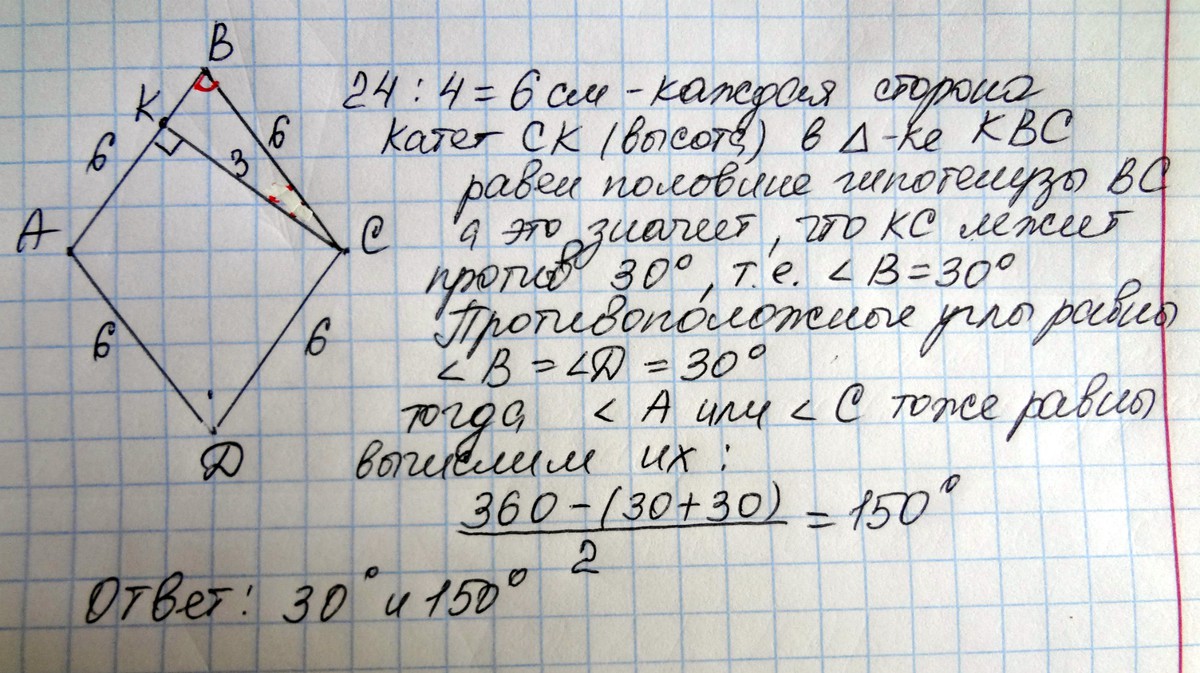 B
K
6
6
3
A
C
6
6
D
24 : 4 = 6 см - каждая сторона
Катет CK (высота) в Δ-ке KBC
равен половине гипотенузы BC
а это значит, что KC лежит
против 30°, т.е. ∠B = 30°
Противоположные углы равны
∠B = ∠D = 30°
тогда ∠A или ∠C тоже равны
вычислим их:
360 - (30 + 30)
2
= 150°
Ответ: 30° и 150°